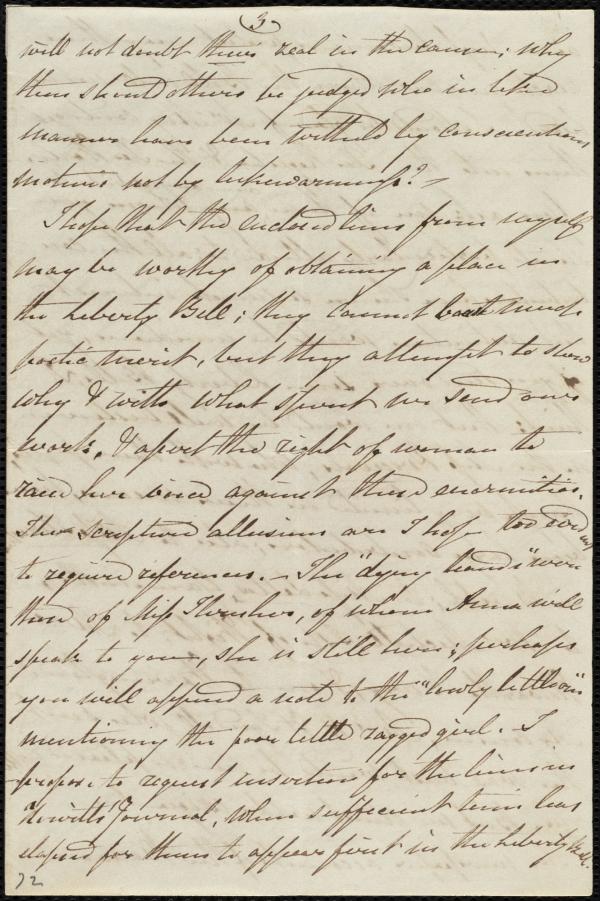 3
will not doubt their zeal in the cause; why
then should others be judged who in like
manner have been withheld by conscientious
motives not by lukewarmness? —
I hope that the enclosed lines from myself
may be worthy of obtaining a place in
the Liberty Bell; they cannot boast much
poetic merit, but they attempt to show
why & with what spirit we send our
work, & assert the right of woman to
raise her voice against these enormities.
The scripture allusions are I hope too
to require references. — The "dying hands" were
those of Miss Thrusher, of whom Anna will
speak to you, she is still here; perhaps
you will append a note to the "lowly little one"
mentioning the poor little ragged girl. I
propose to request insertion for the lines in
Howitt's Journal, when sufficient time has
elapsed for them to appear first in the Liberty Bell.
72